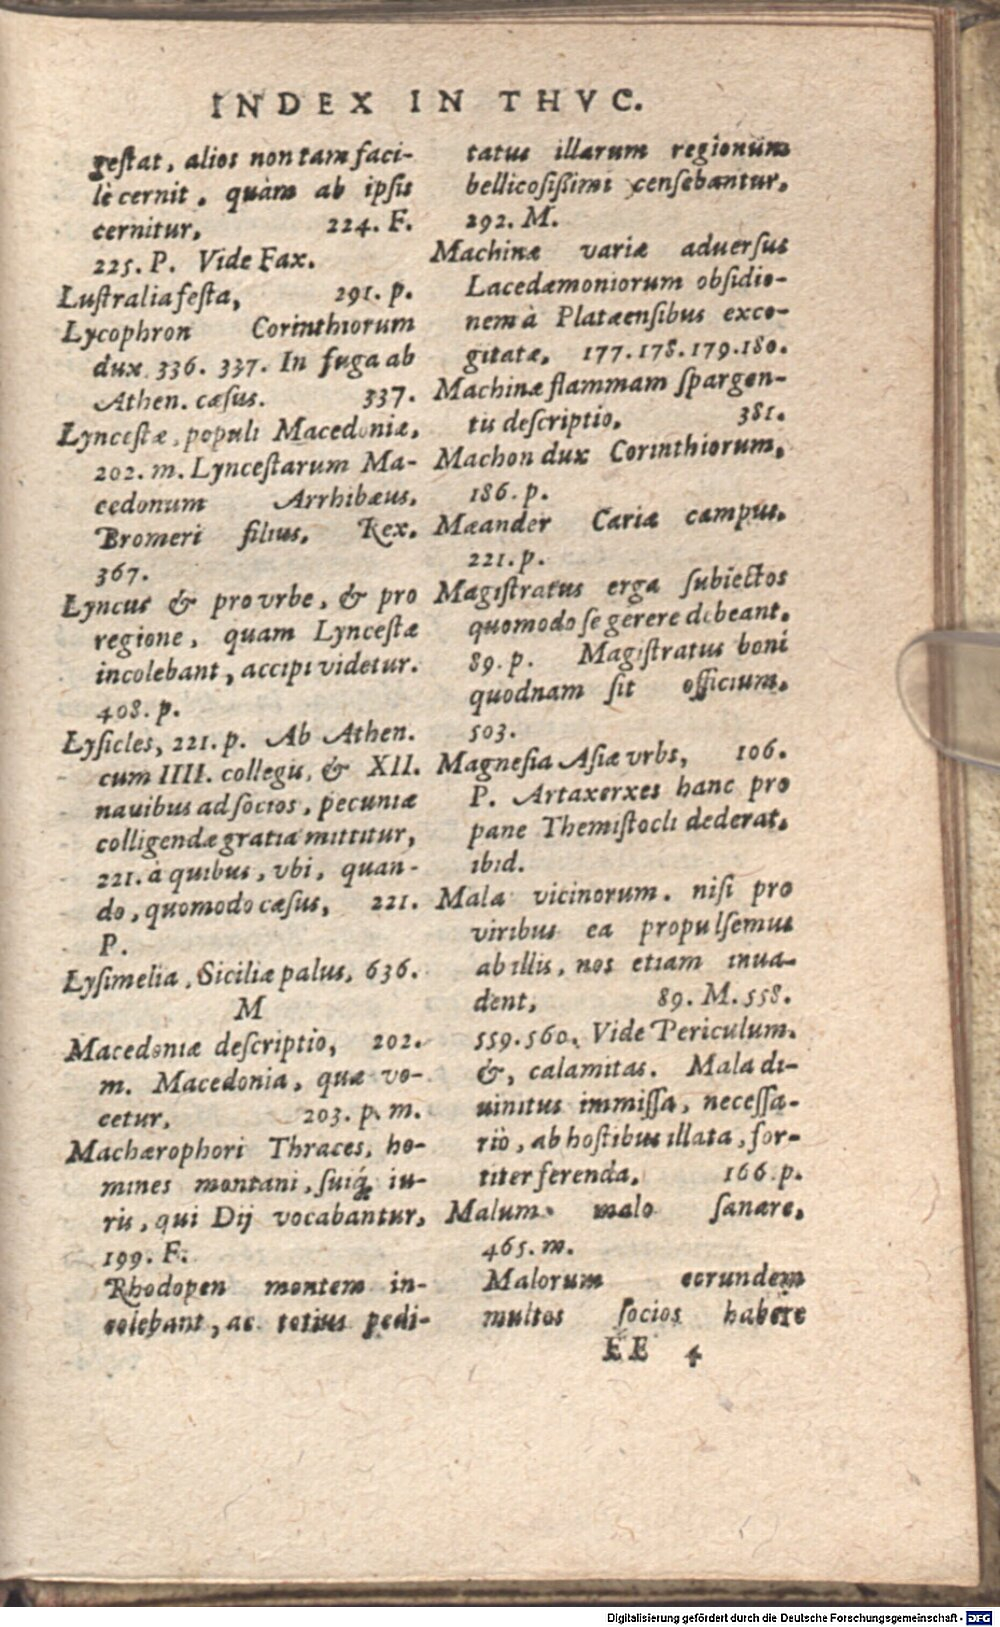 INDEX IN THVC.
gestat, alios non tam faci-
lè cernit, quàm ab ipsis
cernitur, 224. F.
225. P. Vide Fax.
Lustralia festa, 291. p.
Lycophron Corinthiorum
dux 336. 337. In fuga ab
Athen. cæsus. 337.
Lyncestæ, populi Macedoniæ,
202. m. Lyncestarum Ma-
cedonum Arrhibæus,
Bromeri filius, Rex.
367.
Lyncus & pro vrbe, & pro
regione, quam Lyncestæ
incolebant, accipi videtur.
408. p.
Lysicles, 221. p. Ab Athen.
cum IIII. collegis, & XII.
nauibus ad socios, pecuniæ
colligendæ gratia mittitur,
221. à quibus, vbi, quan-
do, quomodo cæsus, 221.
P.
Lysimelia, Siciliæ palus, 636.
M
Macedoniæ descriptio, 202.
m. Macedonia, quæ vo-
cetur, 203. p. m.
Machærophori Thraces, ho-
mines montani, suiq́; iu-
ris, qui Dij vocabantur,
199. F.
Rhodopen montem in-
colebant, ac totius pedi-
tatus illarum regionum
bellicosissimi censebantur,
292. M.
Machinæ variæ aduersus
Lacedæmoniorum obsidio-
nem à Platæensibus exco-
gitatæ, 177. 178. 179. 180.
Machinæ flammam spargen-
tis descriptio, 381.
Machon dux Corinthiorum,
186. p.
Mæander Cariæ campus,
221. p.
Magistratus erga subiectos
quomodo se gerere debeant,
89. p. Magistratus boni
quodnam sit officium,
503.
Magnesia Asiæ vrbs, 106.
P. Artaxerxes hanc pro
pane Themistocli dederat,
ibid.
Mala vicinorum, nisi pro
viribus ea propulsemus
ab illis, nos etiam inua-
dent, 89. M. 558.
559. 560. Vide Periculum.
&, calamitas. Mala di-
uinitus immissa, necessa-
riò, ab hostibus illata, for-
titer ferenda, 166. p.
Malum malo sanare,
465. m.
Malorum eorundem
multos socios habere
EE 4
Digitalisierung gefördert durch die Deutsche Forschungsgemeinschaft - DFG